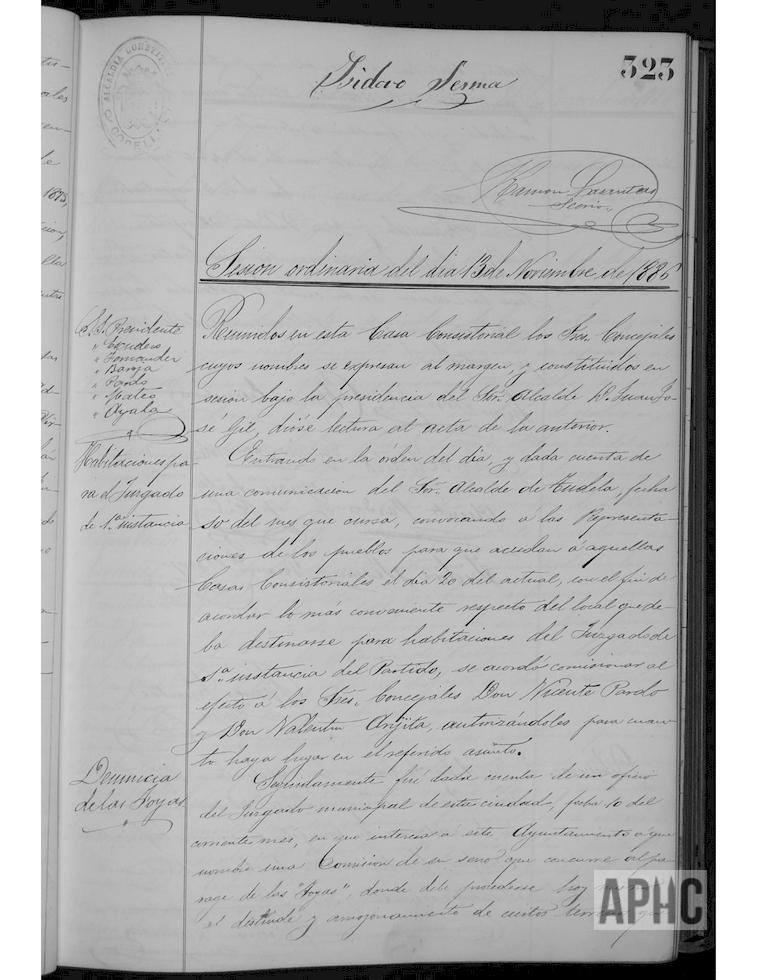 323
ALCALDIA CONSTITU
CORELLA
Isidoro Serma
Ramon
Secrio.
Sesión ordinaria del dia 13 de Noviembre de 1886
S.S. Presidente
" Escudero
" Fernandez
" Baroja
" Pardo
" Mateo
" Ayala
Reunidos en esta Casa Consistorial los Sres. Concejales
cuyos nombres se expresan al margen, y constituidos en
sesion bajo la presidencia del Sor. Alcalde D. Juan Jo-
sé Gil, dióse lectura al acta de la anterior.
Habitaciones pa-
ra el Juzgado
de 1.a instancia
Entrando en la órden del dia, y dada cuenta de
una comunicacion del Sor. Alcalde de Tudela, fecha
10 del mes que cursa, convocando á las Representa-
ciones de los pueblos para que acudan á aquellas
Casas Consistoriales el dia 20 del actual, con el fin de
acordar lo más conveniente respecto del local que de-
ba destinarse para habitaciones del Juzgado de
1.a instancia del Partido, se acordó comisionar al
efecto á los Sres. Concejales Don Vicente Pardo
y Don Valentin Arijita, autorizándoles para cuan-
to haya lugar en el referido asunto.
Denuncia
de las Hoyas
Segundamente fué dada cuenta de un oficio
del Juzgado municipal de esta ciudad, fecha 10 del
corriente mes, en que interesa á este Ayuntamiento á que
nombre una Comision de su seno que concurra al pa-
rage de las "Hoyas", donde debe procederse hoy
el deslinde y amojonamiento de ciertos
APHC